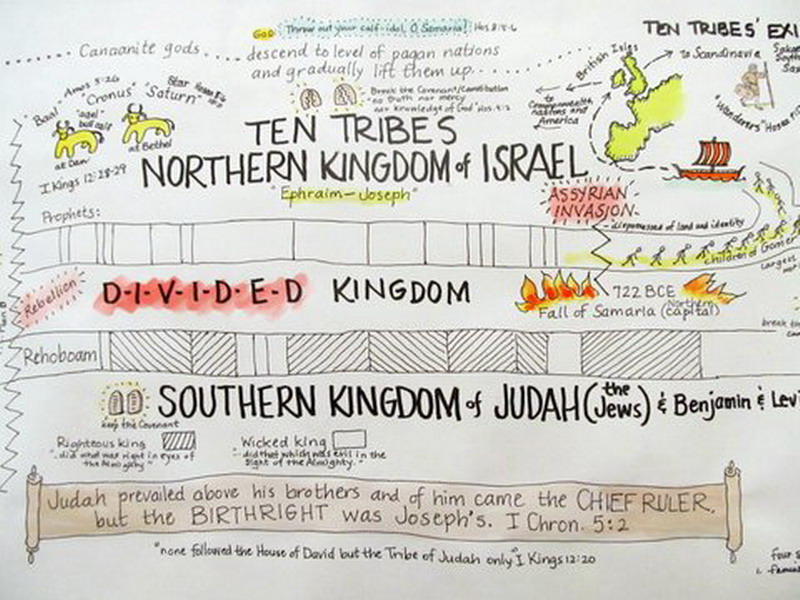 God Throw out your calf-idol, O Samaria! Hos 8:5-6
TEN TRIBES' EXI
..... Canaanite gods ..... descend to level of pagan nations
and gradually lift them up.....
British Isles
to Scandinavia
Amos 5:26
Baal "Cronus" Star "Saturn"
"bull calf"
at Dan
at Bethel
I Kings 12:28-29
Break the Covenant/Constitution
"no truth nor mercy
nor knowledge of God" Hos. 4:1-2
to Commonwealth
nations and
America
"Wanderers" Hosea
TEN TRIBES
NORTHERN KINGDOM of ISRAEL
"Ephraim-Joseph"
ASSYRIAN
INVASION-
- dispossessed of land and identity
Prophets:
Children of Gomer
largest
Rebellion
D-I-V-I-D-E-D KINGDOM
722 BCE Northern
Fall of Samaria (capital)
break
Rehoboam
SOUTHERN KINGDOM of JUDAH (the Jews) & Benjamin & Levi
keep the Covenant
Righteous king
"..did what was right in eyes of
the Almighty"
Wicked king
"did that which was evil in the
sight of the Almighty."
Judah prevailed above his brothers and of him came the CHIEF RULER,
but the BIRTHRIGHT was Joseph's. I Chron. 5:2
"none followed the House of David but the Tribe of Judah only" I Kings 12:20
four